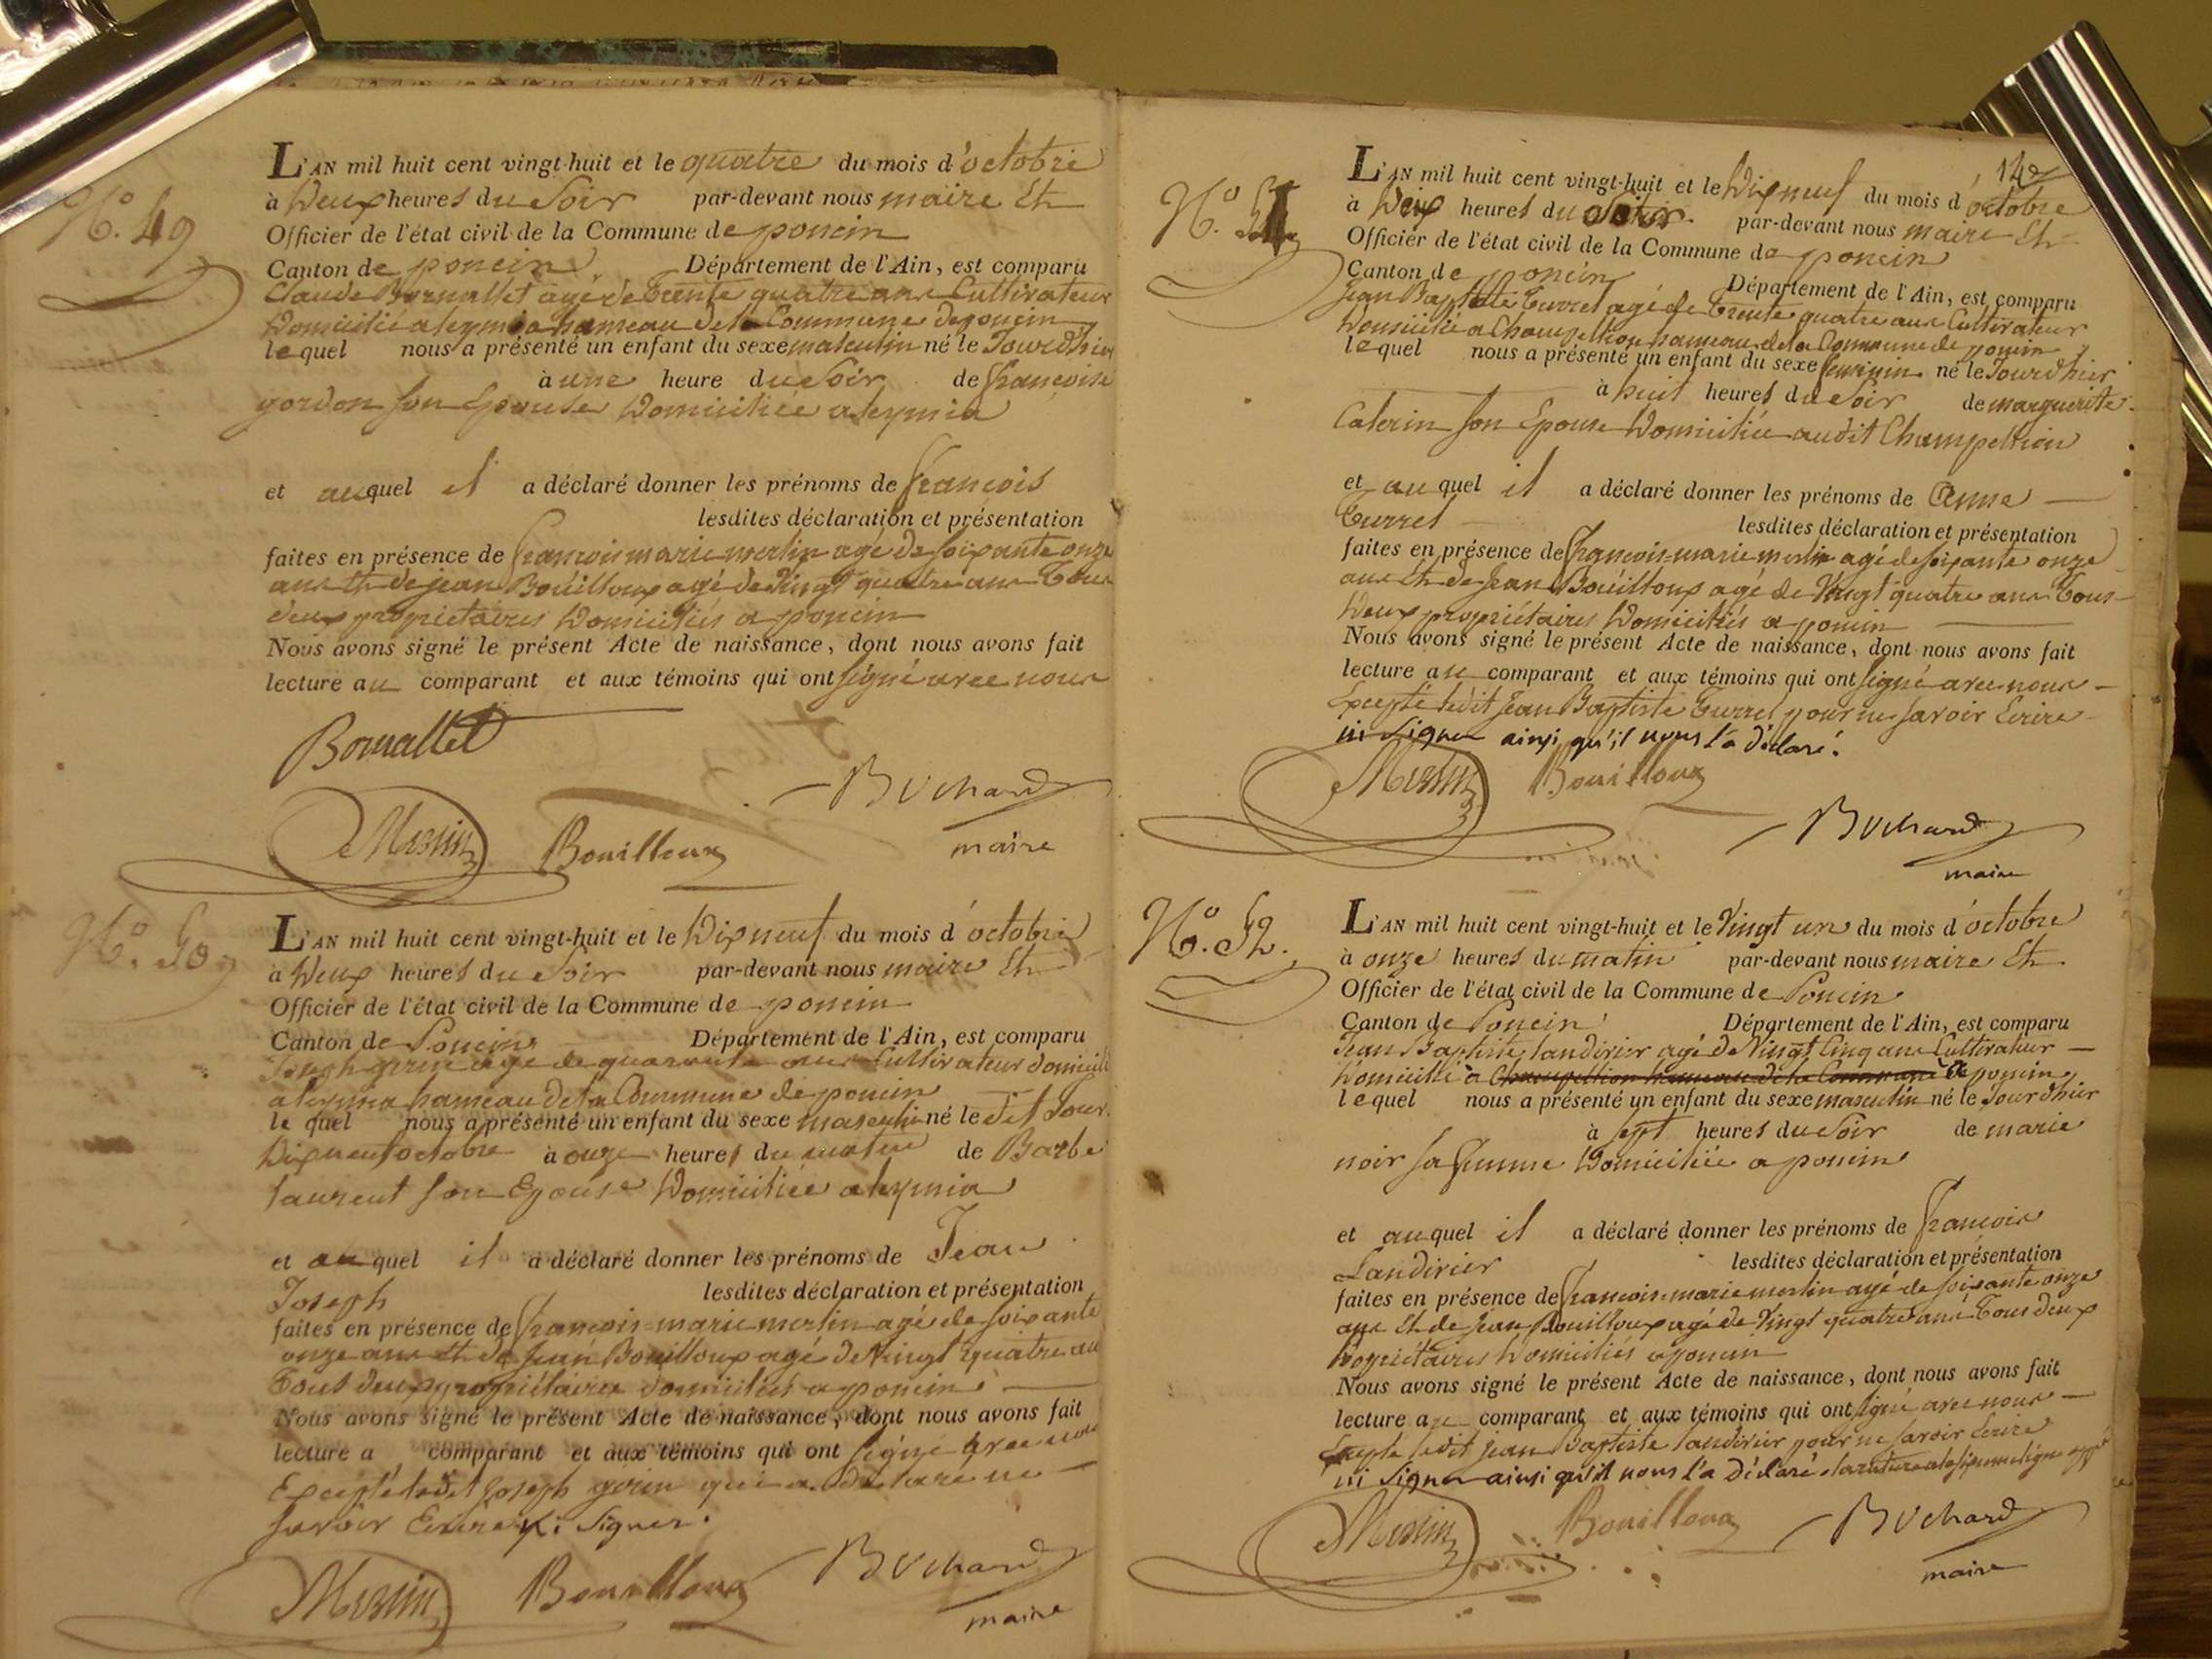 N.º 49
L'AN mil huit cent vingt-huit et le quatre du mois d'octobre
à Deux heures du Soir par-devant nous maire Et
Officier de l'état civil de la Commune de poncin
Canton de poncin Département de l'Ain, est comparu
Claude Bornallet agé de trente quatre ans Cultivateur
Domicilié a leymia hameau de la Commune de poncin
lequel nous a présenté un enfant du sexe masculin né le Jour d'hier
à une heure du Soir de françoise
gordon son Epouse Domiciliée a leymia
et auquel il a déclaré donner les prénoms de françois
lesdites déclaration et présentation
faites en présence de françois marie merlin agé de soixante onze
ans Et de jean Boüilloux agé de Vingt quatre ans Tous
deux propriétaires Domiciliés a poncin
Nous avons signé le présent Acte de naissance, dont nous avons fait
lecture au comparant et aux témoins qui ont signé avec nous
Bornallet
Buchard
maire
Merlin Bouilloux
N.º 50
L'AN mil huit cent vingt-huit et le Dixneuf du mois d'octobre
à Deux heures du Soir par-devant nous maire Et
Officier de l'état civil de la Commune de poncin
Canton de Poncin Département de l'Ain, est comparu
Joseph gerin agé de quarante ans Cultivateur domicilié
a leymia hameau de la Commune de poncin
le quel nous a présenté un enfant du sexe masculin né le dit Jour
Dixneuf octobre à onze heures du matin de Barbe
laurent son Epouse Domiciliée a leymia
et au quel il a déclaré donner les prénoms de Jean
Joseph lesdites déclaration et présentation
faites en présence de françois-marie merlin agé de soixante
onze ans et de Jean Boüilloux agé de Vingt quatre ans
Tous deux propriétaires domiciliés a poncin
Nous avons signé le présent Acte de naissance, dont nous avons fait
lecture a comparant et aux témoins qui ont signé avec nous
Excepté ledit Joseph gerin qui a déclaré ne
savoir Ecrire ni Signer.
Merlin Bouilloux Buchard
maire
N.º 51
L'AN mil huit cent vingt-huit et le Dixneuf du mois d'octobre
à Deux heures du Soir par-devant nous maire Et
Officier de l'état civil de la Commune de poncin
Canton de poncin Département de l'Ain, est comparu
Jean Baptiste Turrel agé de trente quatre ans Cultivateur
Domicilié a Champellion hameau de la Commune de poncin
lequel nous a présenté un enfant du sexe feminin né le Jour d'hier
à huit heures du Soir de marguerite
Caterin son Epouse Domiciliée audit Champellion
et au quel il a déclaré donner les prénoms de Anne
Turrel lesdites déclaration et présentation
faites en présence de françois-marie merlin agé de soixante onze
ans Et de Jean Boüilloux agé de Vingt quatre ans Tous
Deux propriétaires Domiciliés a poncin
Nous avons signé le présent Acte de naissance, dont nous avons fait
lecture au comparant et aux témoins qui ont signé avec nous
Excepté ledit Jean Baptiste Turrel pour ne savoir Ecrire
ni Signer ainsi qu'il nous l'a déclaré.
Merlin Bouilloux
Buchard
maire
N.º 52.
L'AN mil huit cent vingt-huit et le Vingt un du mois d'octobre
à onze heures du matin par-devant nous maire Et
Officier de l'état civil de la Commune de Poncin
Canton de Poncin Département de l'Ain, est comparu
Jean Baptiste landirier agé de Vingt Cinq ans Cultivateur
Domicilié a Champellion hameau de la Commune de poncin
lequel nous a présenté un enfant du sexe masculin né le Jour d'hier
à sept heures du Soir de marie
noir sa femme Domiciliée a poncin
et auquel il a déclaré donner les prénoms de françois
Landirier lesdites déclaration et présentation
faites en présence de françois-marie merlin agé de soixante onze
ans Et de Jean Boüilloux agé de Vingt quatre ans Tous deux
Propriétaires Domiciliés a poncin
Nous avons signé le présent Acte de naissance, dont nous avons fait
lecture au comparant et aux témoins qui ont signé avec nous
Excepté ledit Jean Baptiste landirier pour ne savoir Ecrire
ni Signer ainsi qu'il nous l'a déclaré
Merlin Bouilloux Buchard
maire